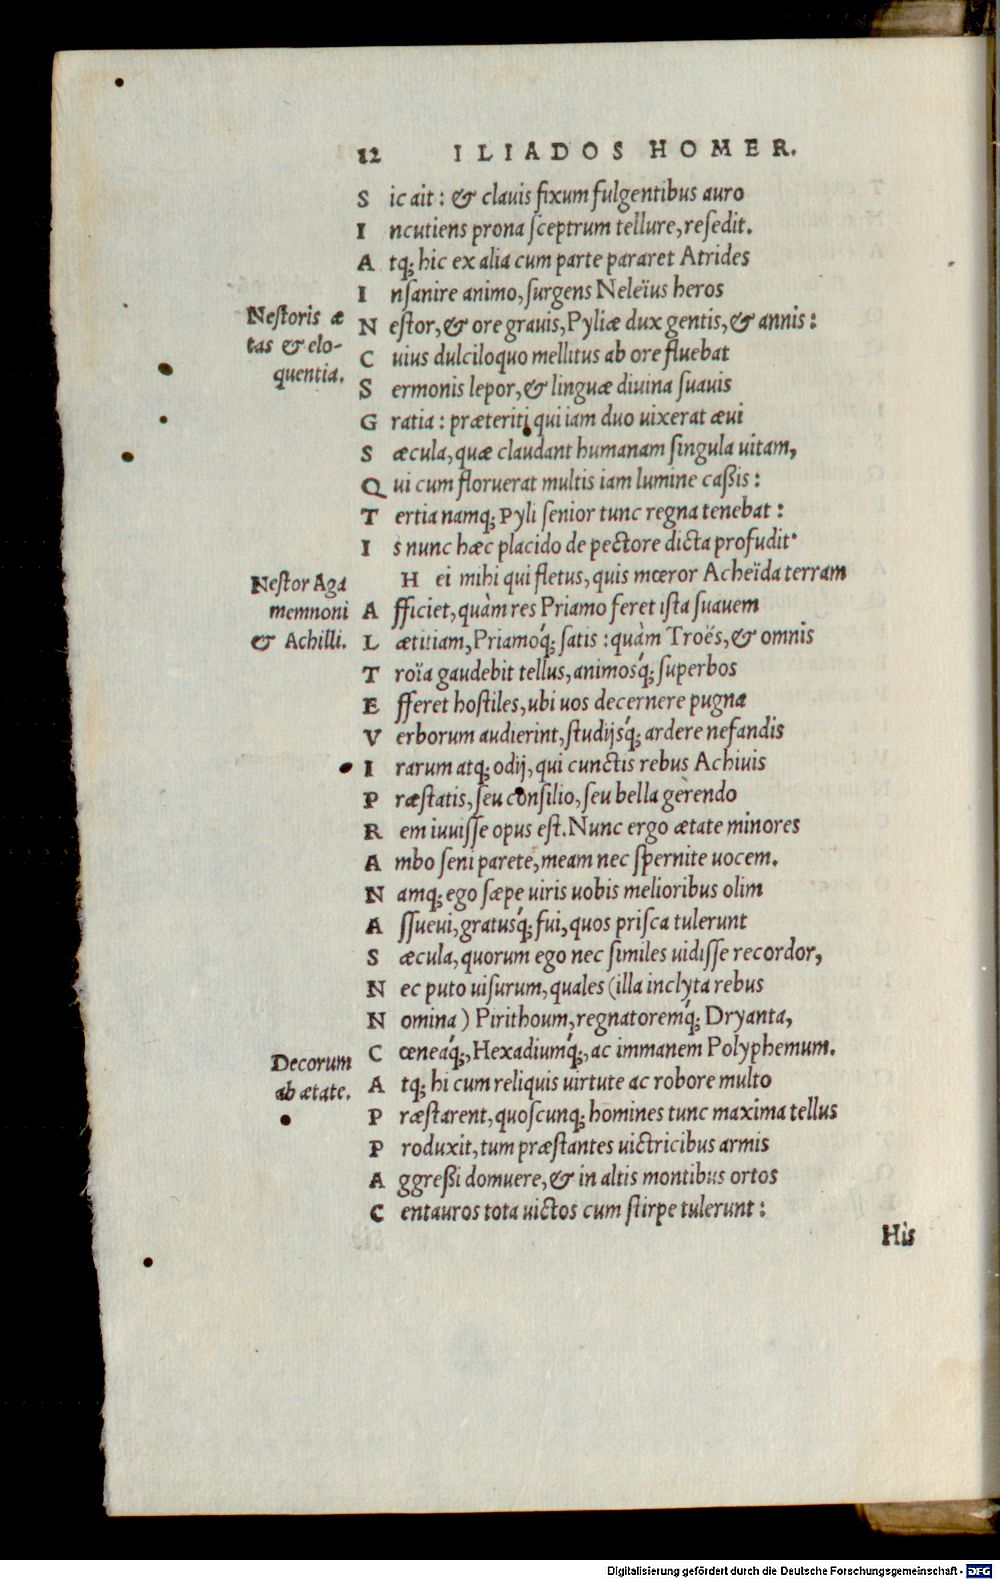 12 ILIADOS HOMER.
S ic ait: & clauis fixum fulgentibus auro
I ncutiens prona ſceptrum tellure, reſedit.
A tq; hic ex alia cum parte pararet Atrides
I nſanire animo, ſurgens Neleïus heros
Neſtoris æ
tas & elo-
quentia.
N eſtor, & ore grauis, Pyliæ dux gentis, & annis:
C uius dulciloquo mellitus ab ore fluebat
S ermonis lepor, & linguæ diuina ſuauis
G ratia: præteriti qui iam duo uixerat æui
S æcula, quæ claudant humanam ſingula uitam,
Q ui cum floruerat multis iam lumine caßis:
T ertia namq; Pyli ſenior tunc regna tenebat:
I s nunc hæc placido de pectore dicta profudit.
Neſtor Aga
memnoni
& Achilli.
H ei mihi qui fletus, quis mœror Acheïda terram
A fficiet, quàm res Priamo feret iſta ſuauem
L ætitiam, Priamoq́; ſatis: quàm Troës, & omnis
T roïa gaudebit tellus, animosq́; ſuperbos
E fferet hoſtiles, ubi uos decernere pugna
V erborum audierint, ſtudijsq́; ardere nefandis
I rarum atq; odij, qui cunctis rebus Achiuis
P ræſtatis, ſeu conſilio, ſeu bella gerendo
R em iuuiſſe opus eſt. Nunc ergo ætate minores
A mbo ſeni parete, meam nec ſpernite uocem.
N amq; ego ſæpe uiris uobis melioribus olim
A ſſueui, gratusq́; fui, quos priſca tulerunt
S æcula, quorum ego nec ſimiles uidiſſe recordor,
N ec puto uiſurum, quales (illa inclyta rebus
N omina) Pirithoum, regnatoremq́; Dryanta,
Decorum
ab ætate.
C œneaq́;, Hexadiumq́;, ac immanem Polyphemum.
A tq; hi cum reliquis uirtute ac robore multo
P ræſtarent, quoſcunq; homines tunc maxima tellus
P roduxit, tum præſtantes uictricibus armis
A ggreßi domuere, & in altis montibus ortos
C entauros tota uictos cum ſtirpe tulerunt:
His
Digitalisierung gefördert durch die Deutsche Forschungsgemeinschaft - DFG